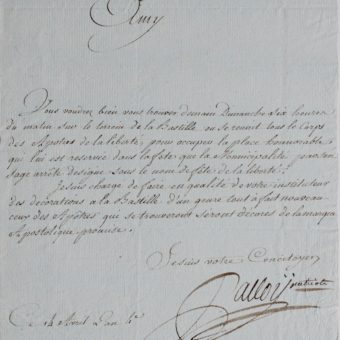 Amy
Vous voudrez bien vous trouver demain Dimanche six heures
du matin sur le terrein de la Bastille, ou se reunit tous le Corps
des Apotres de la liberté, pour occuper la place honnorable,
qui lui est reservée dans la fete que la Municipalité par son
sage arrêté designe sous le nom de fête de la liberté.
Je suis chargé de faire en qualité de votre instituteur
des décorations a la Bastille d'un genre tout a fait nouveau
ceux des Apôtres qui se trouveront seront décorés de la marque
Apostolique promise.
Je suis votre Concitoyen
Palloy patriote
Ce 14 Avril l'an 4e